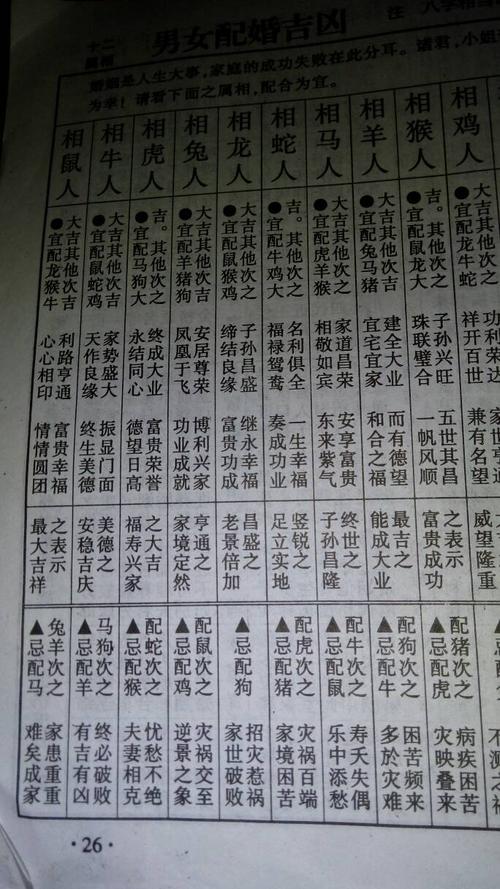 十二
属相
男女配婚吉凶
注 八字相当
婚姻是人生大事,家庭的成功失败在此分耳。诸君,小姐
为幸!请看下面之属相,配合为宜。
相鼠人
●宜配龙猴牛
大吉其他次吉
心心相印
利路亨通
情情圆团
富贵幸福
最大吉祥
之表示
▲忌配马
兔羊次之
难矣成家
家患重重
相牛人
●宜配鼠蛇鸡
大吉其他次吉
天作良缘
家势盛大
终生美德
振显门面
安稳吉庆
美德之
▲忌配羊
马狗次之
有吉有凶
终必破败
相虎人
●宜配马狗大
吉。其他次之
永结同心
终成大业
德望日高
富贵荣誉
福寿兴家
之大吉
▲忌配猴
配蛇次之
夫妻相克
忧愁不绝
相兔人
●宜配羊猪狗
大吉其他次之
凤凰于飞
安居尊荣
功业成就
博利兴家
家境定然
亨通之
▲忌配鸡
配鼠次之
逆景之象
灾祸交至
相龙人
●宜配鼠猴鸡
大吉其他次之
缔结良缘
子孙昌盛
富贵成功
继永幸福
老景倍加
昌盛之
▲忌配狗
家世破败
招灾惹祸
相蛇人
●宜配牛鸡大
吉。其他次之
福禄鸳鸯
名利俱全
奏成功业
一生幸福
足立实地
竖锐之
▲忌配猪
配虎次之
家境困苦
灾祸百端
相马人
●宜配虎羊猴
大吉其他次之
相敬如宾
家道昌荣
东来紫气
安享富贵
子孙昌隆
终世之
▲忌配鼠
配牛次之
乐中添愁
寿夭失偶
相羊人
●宜配兔马猪
大吉其他次之
宜宅宜家
建全大业
和合之福
而有德望
能成大业
最吉之
▲忌配牛
配狗次之
多於灾难
困苦频来
相猴人
●宜配鼠龙大
吉。其他次之
珠联璧合
子孙兴旺
一帆风顺
五世其昌
富贵成功
之表示
▲忌配虎
配猪次之
灾映叠来
病疾困苦
相鸡人
●宜配龙牛蛇
大吉其他次之
祥开百世
功利荣达
兼有名望
威望隆重
·26·